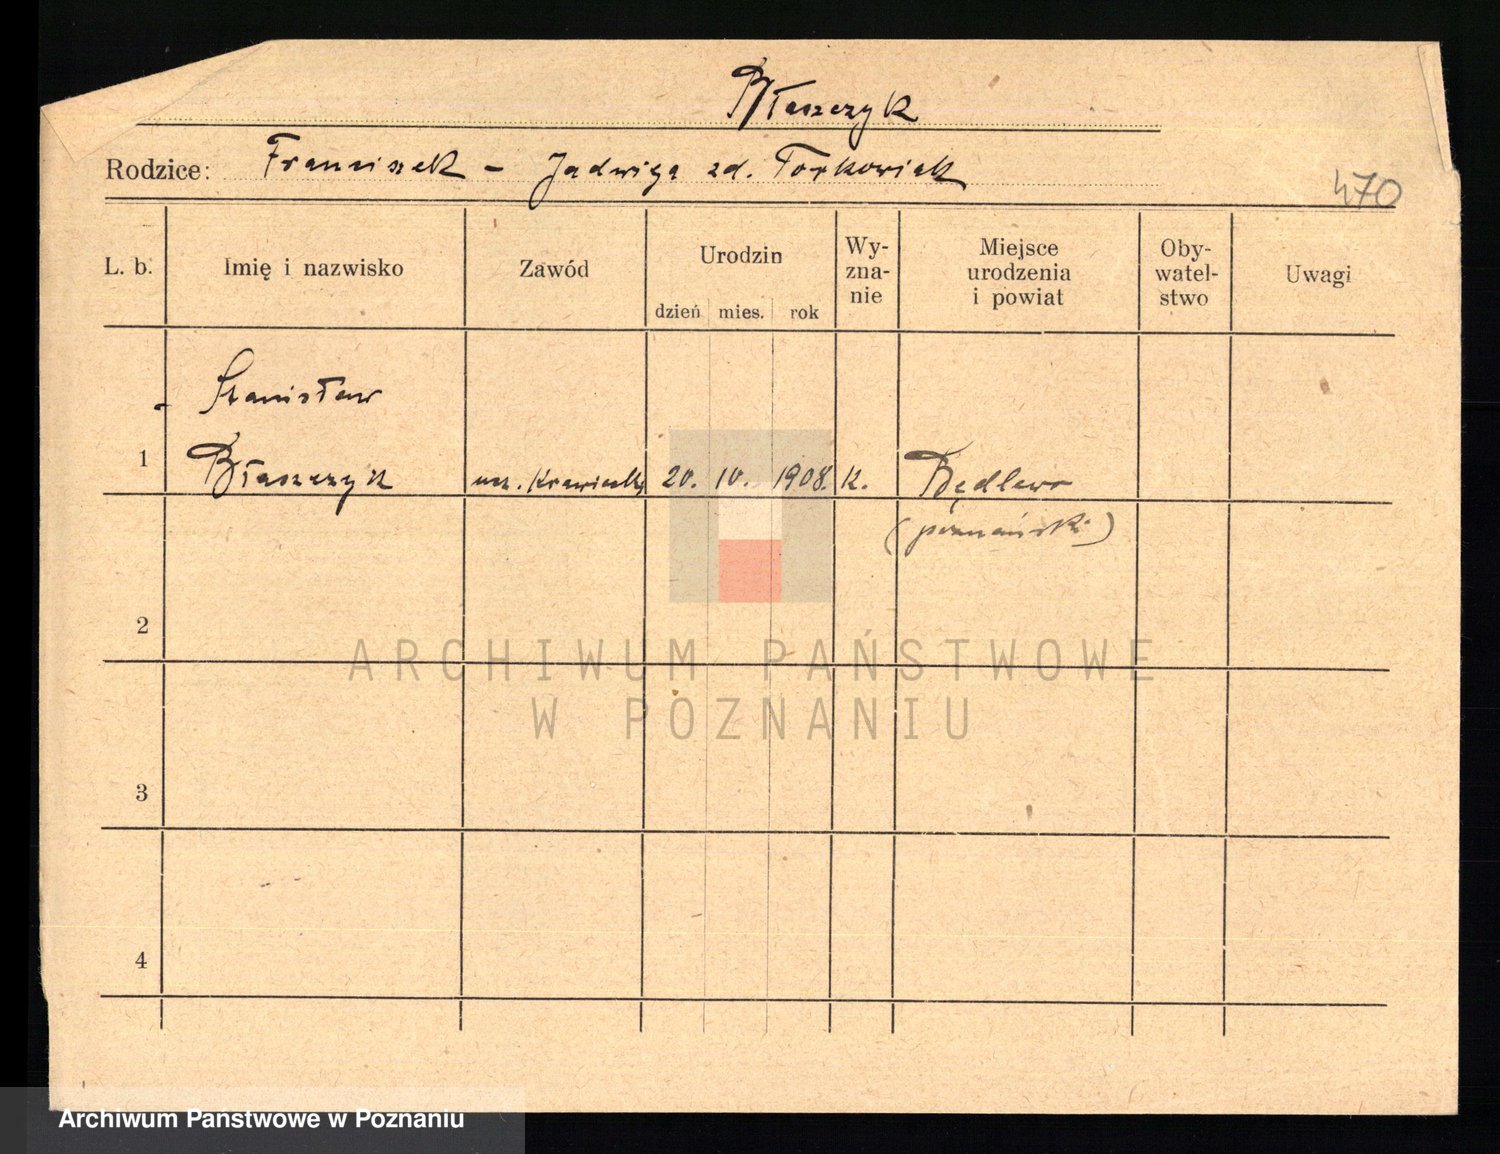 Błaszczyk
Rodzice: Franciszek - Jadwiga zd. Torkowiak
470
L. b. Imię i nazwisko Zawód Urodzin Wy-zna-nie Miejsce urodzenia i powiat Oby-watel-stwo Uwagi
dzień mies. rok
Stanisław
1 Błaszczyk ucz. Krawiecki 20. 10. 1908. k. Będlewo
(poznański)
2
ARCHIWUM PAŃSTWOWE
W POZNANIU
3
4
Archiwum Państwowe w Poznaniu